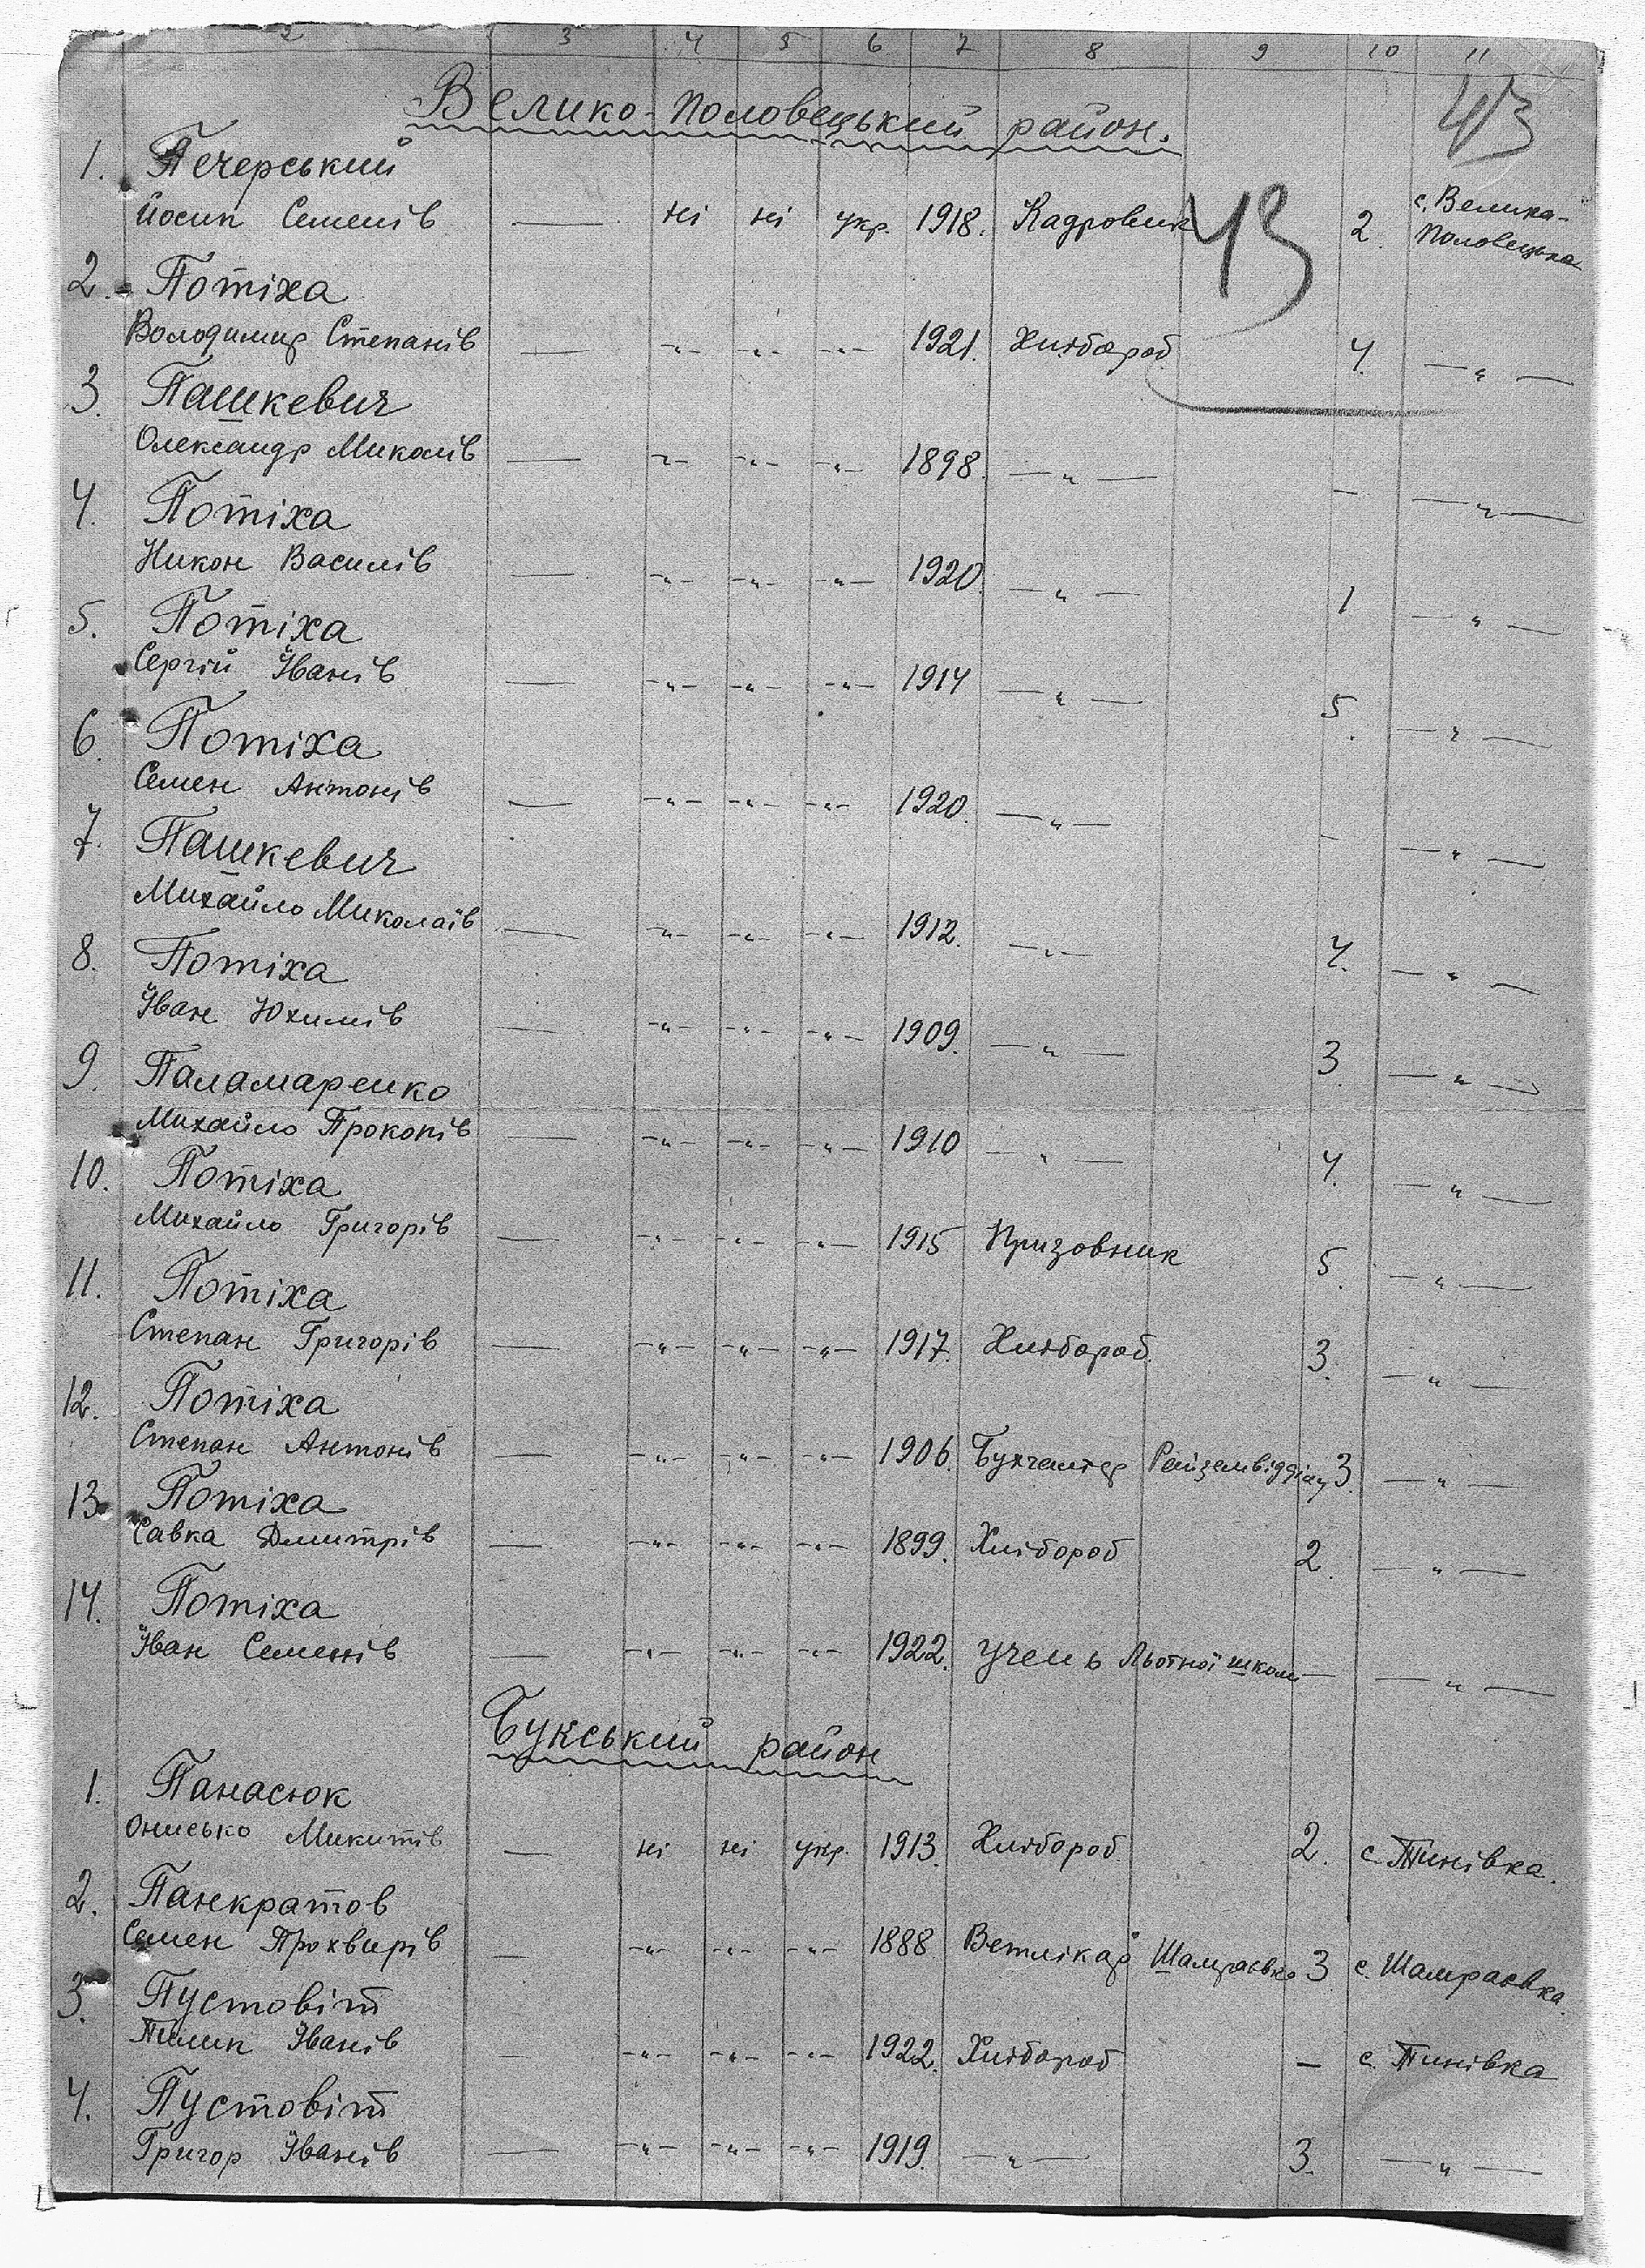 2 3 4 5 6 7 8 9 10 11
43
Велико-Половецький район.
1. Печерський
Йосип Семенів — ні ні укр. 1918. Кадровик 2. с. Велика-
Половецька
43
2. Потіха
Володимир Степанів — -"- -"- -"- 1921. Хлібороб 4. — " —
3. Пашкевич
Олександр Миколів — -"- -"- -"- 1898. — " — - — " —
4. Потіха
Никон Василів — -"- -"- -"- 1920. — " — 1 — " —
5. Потіха
Сергій Іванів — -"- -"- -"- 1914 — " — 5. — " —
6. Потіха
Семен Антонів — -"- -"- -"- 1920. — " — - — " —
7. Пашкевич
Михайло Миколаїв — -"- -"- -"- 1912. — " — 4. — " —
8. Потіха
Іван Юхимів — -"- -"- -"- 1909. — " — 3. — " —
9. Паламаренко
Михайло Прокопів — -"- -"- -"- 1910 — " — 4. — " —
10. Потіха
Михайло Григорів — -"- -"- -"- 1915 Призовник 5. — " —
11. Потіха
Степан Григорів — -"- -"- -"- 1917. Хлібороб. 3. — " —
12. Потіха
Степан Антонів — -"- -"- -"- 1906. Бухгалтер Райземвідділу 3. — " —
13. Потіха
Савка Дмитрів — -"- -"- -"- 1899. Хлібороб 2. — " —
14. Потіха
Іван Семенів — -"- -"- -"- 1922. учень Льотної школи — — " —
Букський район
1. Панасюк
Онисько Микитів — ні ні укр. 1913. Хлібороб 2. с. Тинівка.
2. Панкратов
Семен Прохвирів — -"- -"- -"- 1888 Ветлікар Шамраєвка 3 с. Шамраєвка.
3. Пустовіт
Пилип Іванів — -"- -"- -"- 1922. Хлібороб — с. Тинівка
4. Пустовіт
Григор Іванів — -"- -"- -"- 1919. — " — 3. — " —